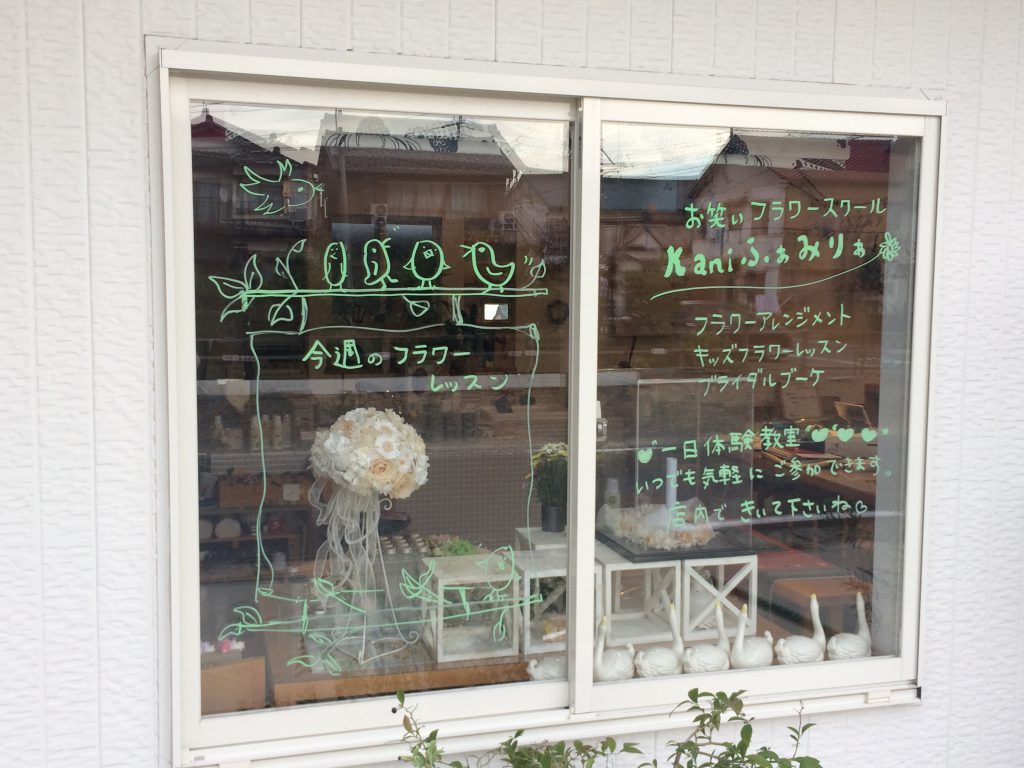 今週のフラワー
レッスン
お笑いフラワースクール
Kaniふぁみりぁ
フラワーアレンジメント
キッズフラワーレッスン
ブライダルブーケ
一日体験教室
いつでも気軽にご参加できます。
店内できいて下さいね